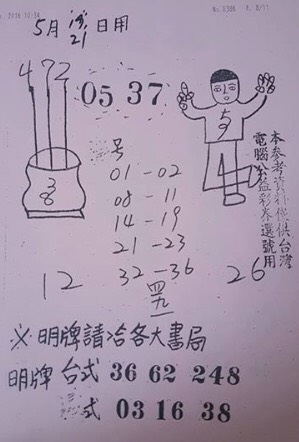 No. 0306 P. 8/11
5月19/21日用
472
05 37
号
01-02
08-11
14-19
21-23
32-36
38
12
26
本参考資料僅供台湾
電腦公益彩券選號用
※明牌請洽各大書局
明牌 台式 36 62 248
式 03 16 38